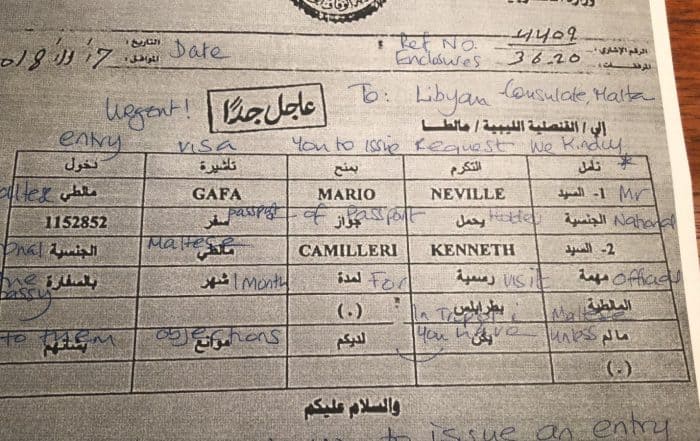 التاريخ :
الموافق :
Date
Ref No. 4409 الرقم الإشاري :
Enclosures 36.20 المرفقات :
Urgent!
عاجل جدًا
To: Libyan Consulate, Malta
إلى / القنصلية الليبية / مالطا
entry visa you to issue Request We Kindly *
نأمل التكرم بمنح تأشيرة دخول
1- السيد NEVILLE MARIO GAFA مالطي
Mr
الجنسية يحمل جواز سفر 1152852
National Holder Passport of passport
2- السيد KENNETH CAMILLERI مالطي الجنسية
Maltese
مهمة رسمية لمدة شهر بالسفارة
visit For 1 Month
المالطية بطرابلس (.)
In Maltese
مالم يكن لديكم موانع بشأنهم
unless you have objections to them
(.)
والسلام عليكم
to issue an entry